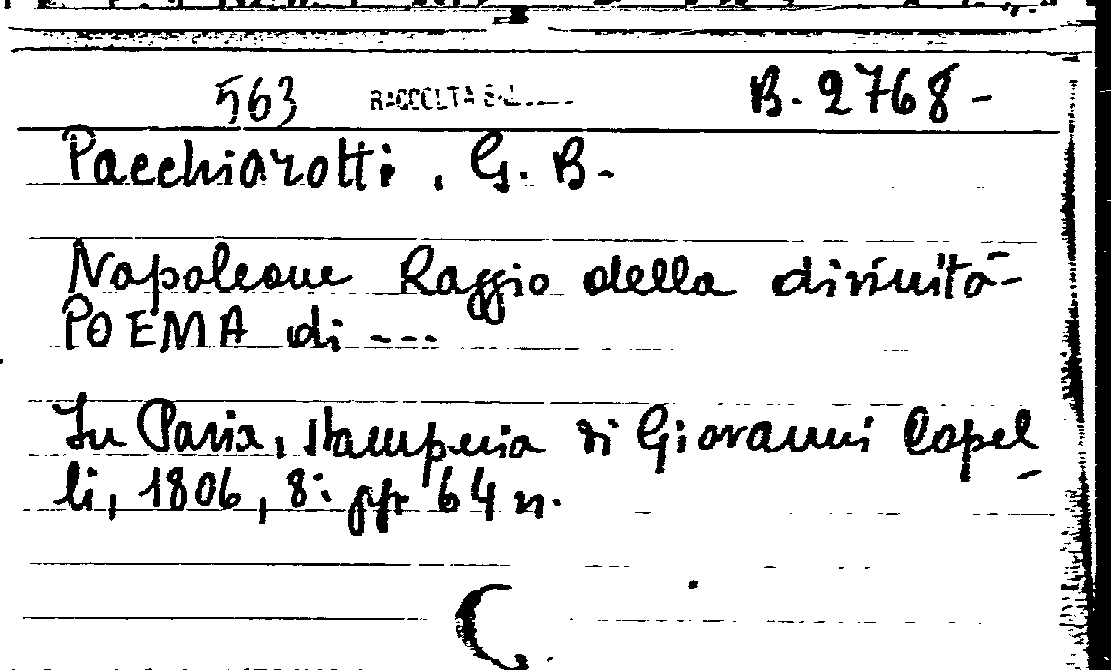 563 RACCOLTA B. 2768-
Pacchiarotti, G. B.-
Napoleone Raggio della divinità-
POEMA di ---
In Pavia, stamperia di Giovanni Capel-
li, 1806, 8: pp 64 n.